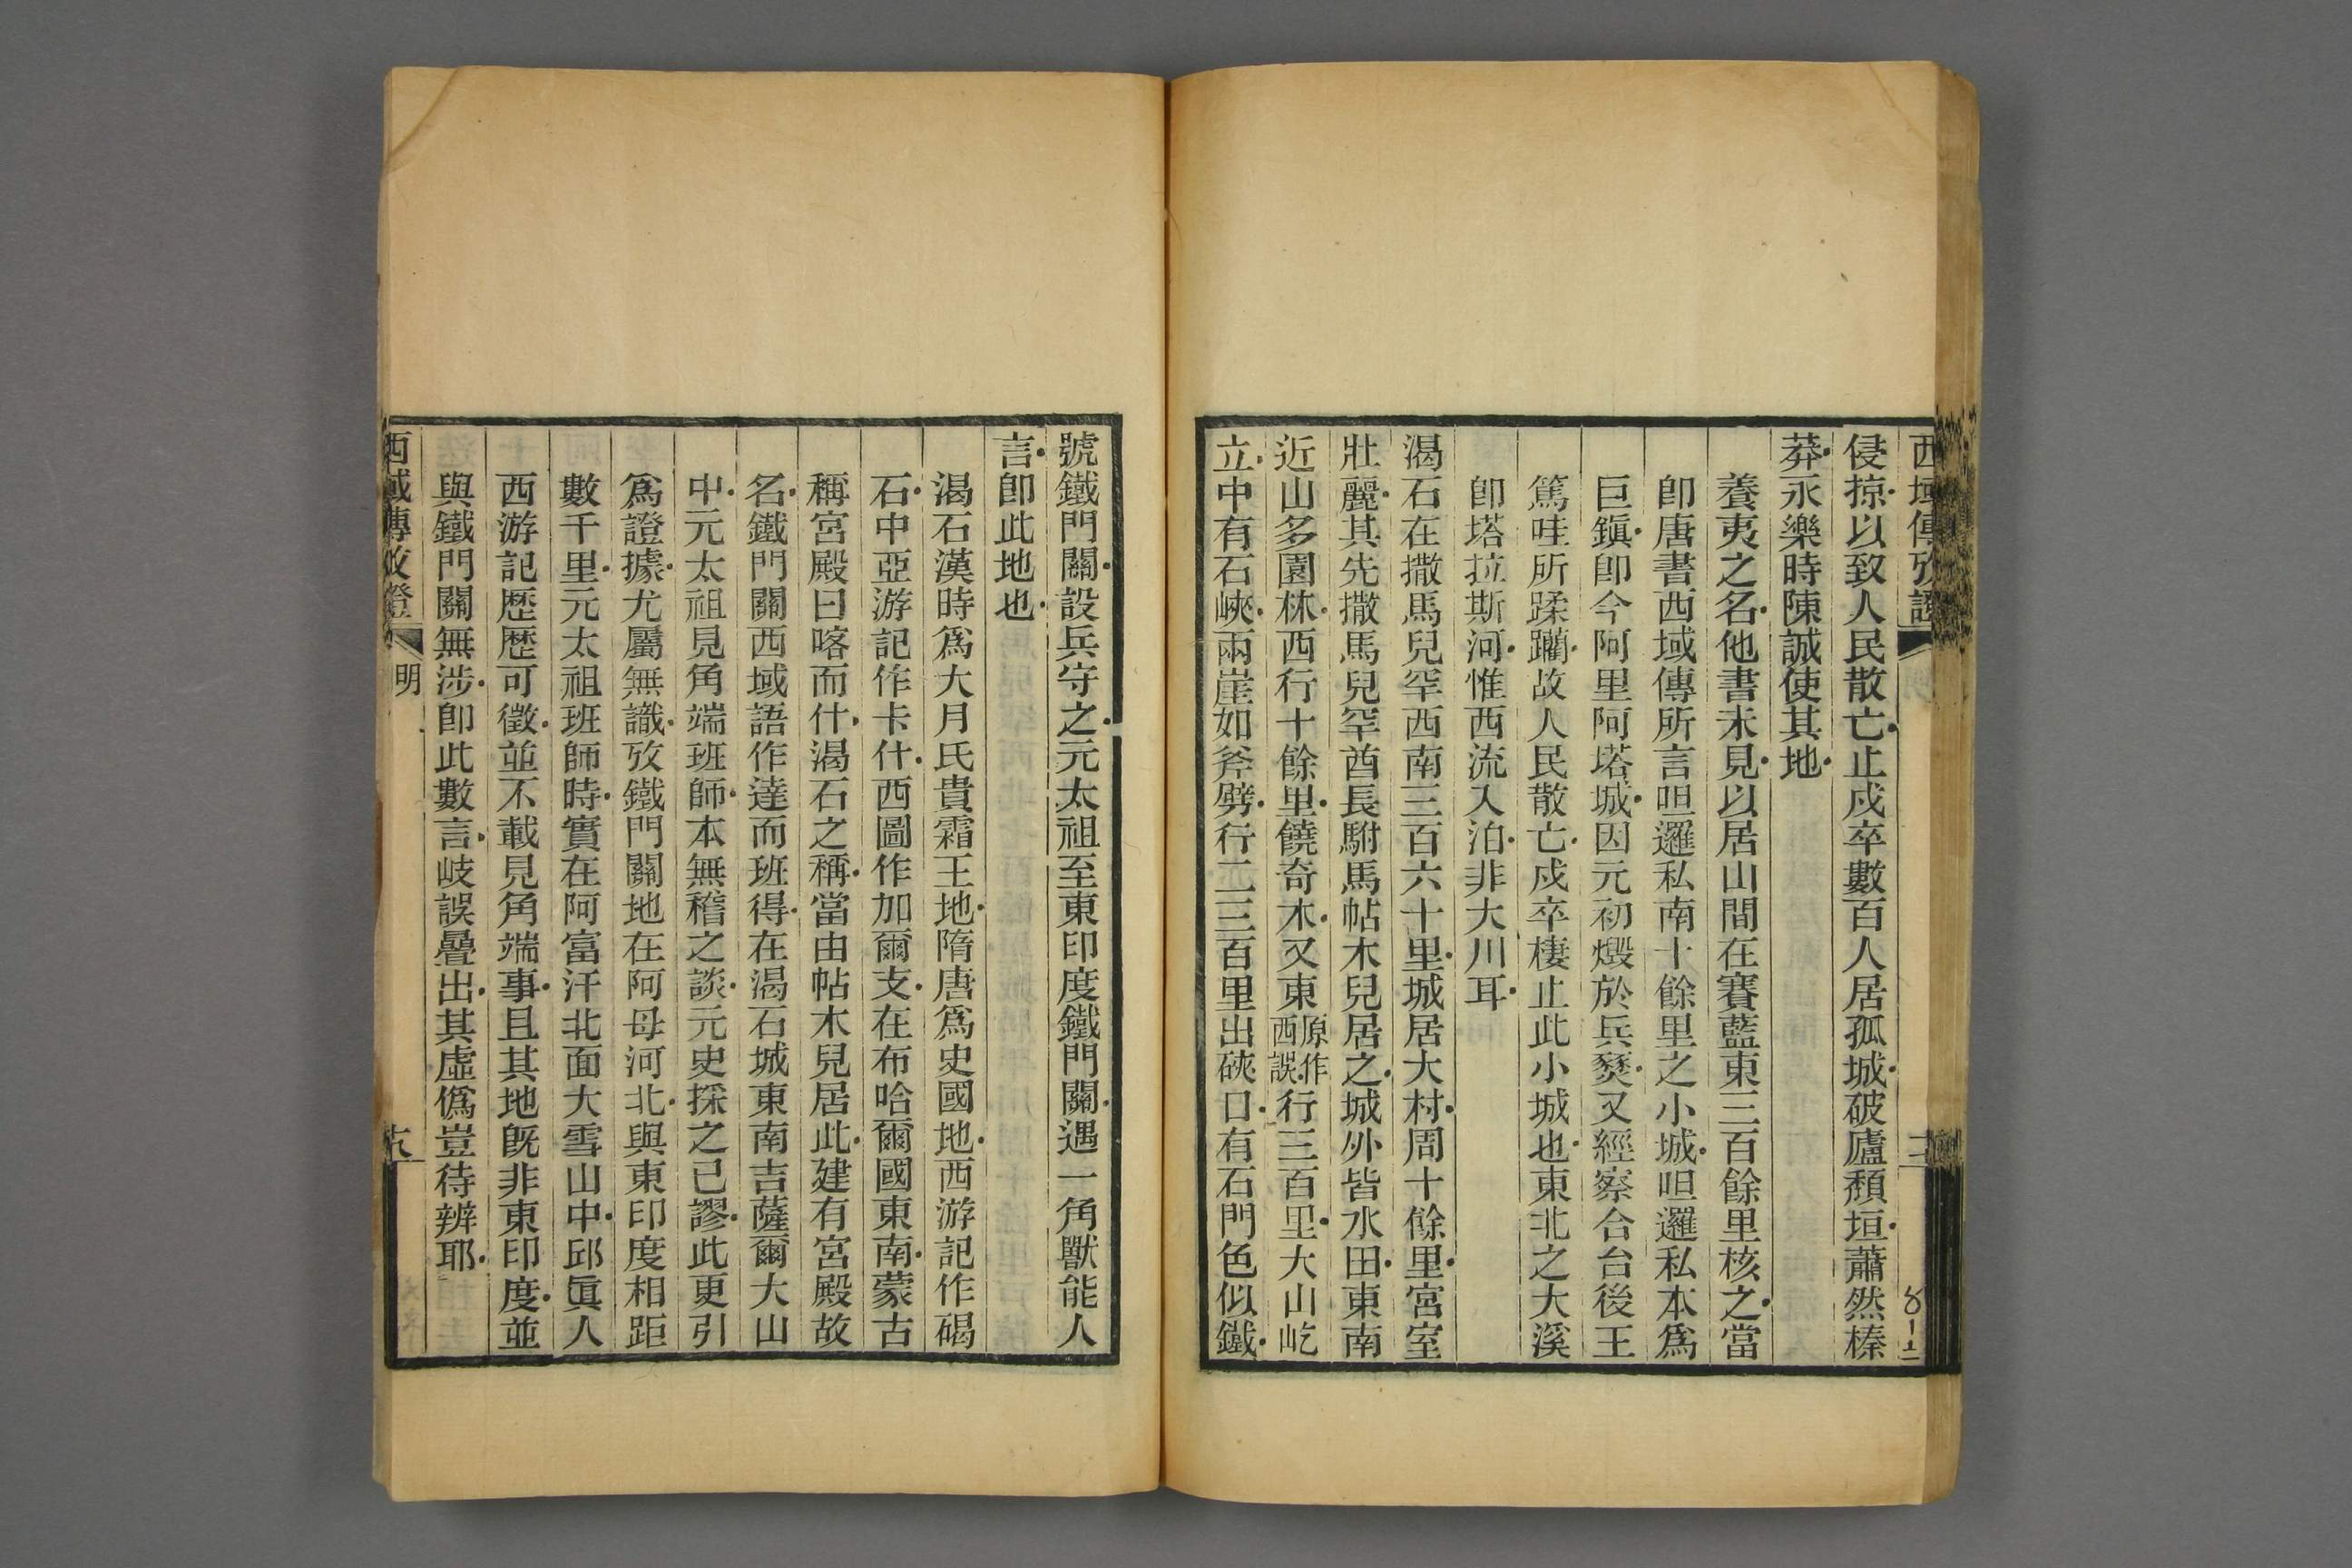 西域傳攷證
侵掠以致人民散亡止戍卒數百人居孤城破廬頹垣蕭然榛
莽永樂時陳誠使其地
養夷之名他書未見以居山間在賽藍東三百餘里核之當
卽唐書西域傳所言呾邏私南十餘里之小城呾邏私本爲
巨鎭卽今阿里阿塔城因元初燬於兵燹又經察合台後王
篤哇所蹂躪故人民散亡戍卒棲止此小城也東北之大溪
卽塔拉斯河惟西流入泊非大川耳
渴石在撒馬兒罕西南三百六十里城居大村周十餘里宮室
壯麗其先撒馬兒罕酋長駙馬帖木兒居之城外皆水田東南
近山多園林西行十餘里饒奇木又東原作西誤行三百里大山屹
立中有石峽兩崖如斧劈行二三百里出硤口有石門色似鐵
號鐵門關設兵守之元太祖至東印度鐵門關遇一角獸能人
言卽此地也
渴石漢時爲大月氏貴霜王地隋唐爲史國地西游記作碣
石中亞游記作卡什西圖作加爾支在布哈爾國東南蒙古
稱宮殿曰喀而什渴石之稱當由帖木兒居此建有宮殿故
名鐵門關西域語作達而班得在渴石城東南吉薩爾大山
中元太祖見角端班師本無稽之談元史採之已謬此更引
爲證據尤屬無識攷鐵門關地在阿母河北與東印度相距
數千里元太祖班師時實在阿富汗北面大雪山中邱眞人
西游記歷歷可徵並不載見角端事且其地旣非東印度並
與鐵門關無涉卽此數言歧誤疊出其虛僞豈待辨耶
西域傳攷證
明